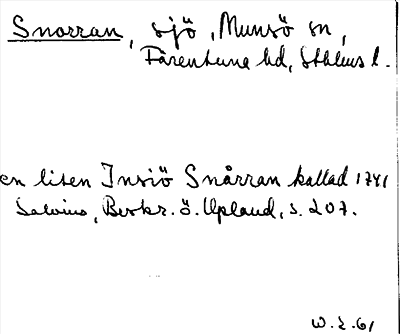 Snorran, sjö, Munsö sn,
Färentuna hd, Sthlms l.
en liten Insiö Snårran kallad 1741
Salvius, Beskr. ö. Upland, s. 207.
W.Z.61